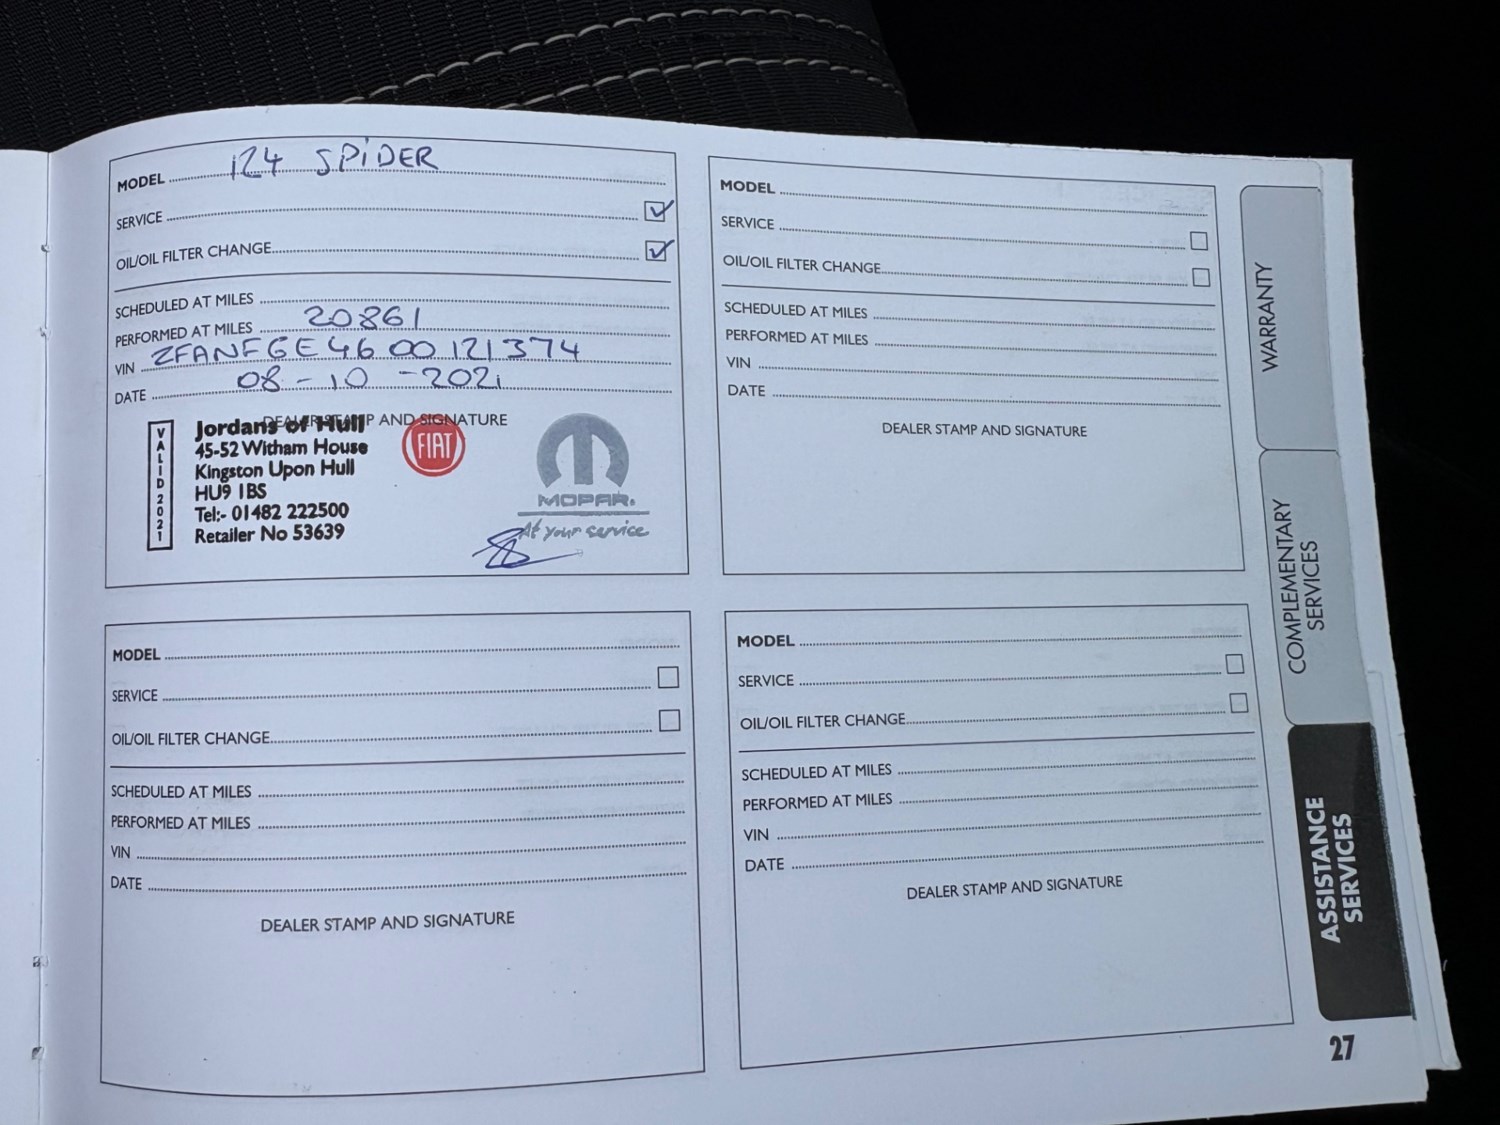 MODEL 124 SPIDER
SERVICE
OIL/OIL FILTER CHANGE
SCHEDULED AT MILES
PERFORMED AT MILES 20861
VIN ZFANFGE4600121374
DATE 08-10-2021
DEALER STAMP AND SIGNATURE
VALID 2021
Jordans of Hull
45-52 Witham House
Kingston Upon Hull
HU9 1BS
Tel:- 01482 222500
Retailer No 53639
FIAT
MOPAR.
At your service
MODEL
SERVICE
OIL/OIL FILTER CHANGE
SCHEDULED AT MILES
PERFORMED AT MILES
VIN
DATE
DEALER STAMP AND SIGNATURE
MODEL
SERVICE
OIL/OIL FILTER CHANGE
SCHEDULED AT MILES
PERFORMED AT MILES
VIN
DATE
DEALER STAMP AND SIGNATURE
MODEL
SERVICE
OIL/OIL FILTER CHANGE
SCHEDULED AT MILES
PERFORMED AT MILES
VIN
DATE
DEALER STAMP AND SIGNATURE
WARRANTY
COMPLEMENTARY
SERVICES
ASSISTANCE
SERVICES
27